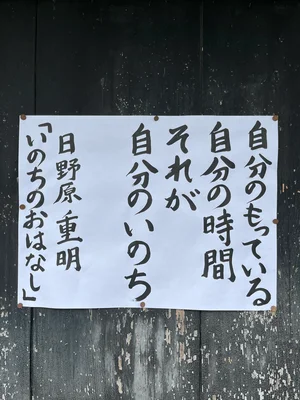 自分のもっている
自分の時間
それが
自分のいのち
日野原重明
「いのちのおはなし」